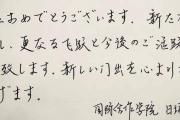 おめでとうございます。新たな
更なる飛躍と今後のご活躍
致します。新しい門出を心より
げます。
国際合作学院 日